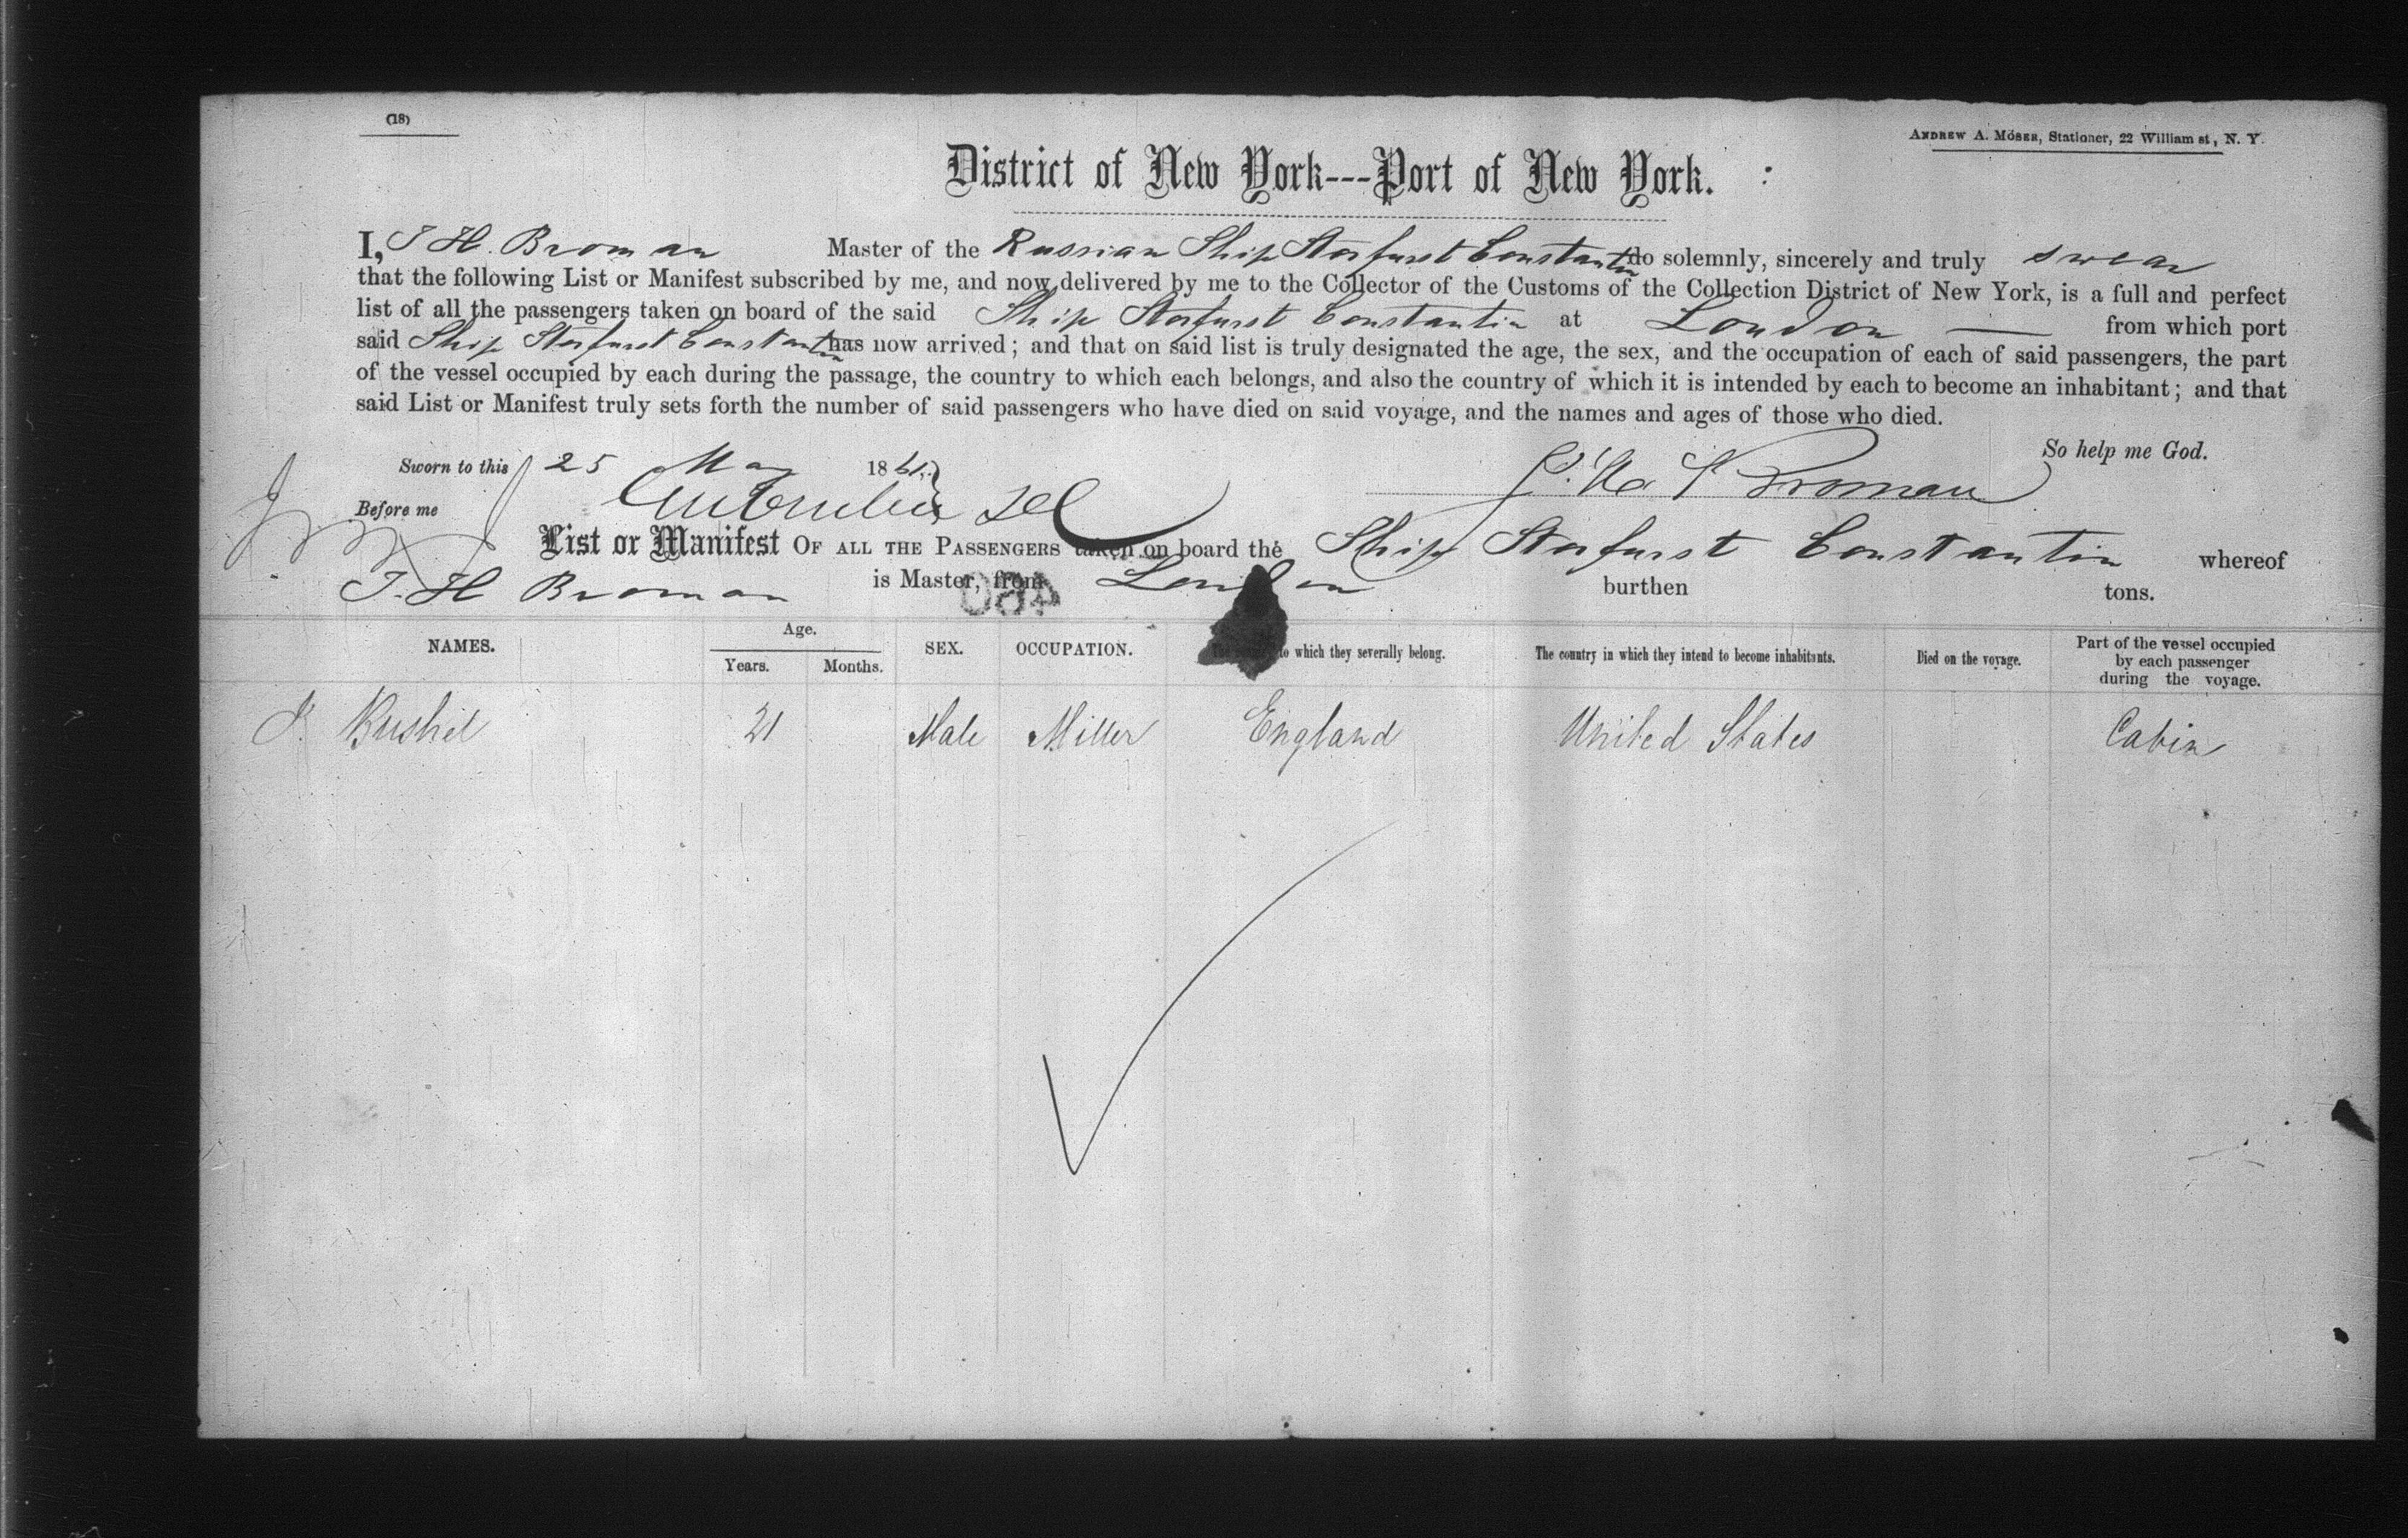 (18)
ANDREW A. MOSER, Stationer, 22 William st, N. Y.
District of New York---Port of New York.
I, J H. Broman Master of the Russian Ship Storfurst Constantin do solemnly, sincerely and truly swear
that the following List or Manifest subscribed by me, and now delivered by me to the Collector of the Customs of the Collection District of New York, is a full and perfect
list of all the passengers taken on board of the said Ship Storfurst Constantin at London from which port
said Ship Storfurst Constantin has now arrived; and that on said list is truly designated the age, the sex, and the occupation of each of said passengers, the part
of the vessel occupied by each during the passage, the country to which each belongs, and also the country of which it is intended by each to become an inhabitant; and that
said List or Manifest truly sets forth the number of said passengers who have died on said voyage, and the names and ages of those who died.
So help me God.
Sworn to this 25 May 1861
Broman
Before me
List or Manifest OF ALL THE PASSENGERS taken on board the Ship Storfurst Constantin whereof
J. H Broman is Master, from London burthen tons.
NAMES. Age. Years. Months. SEX. OCCUPATION. to which they severally belong. The country in which they intend to become inhabitants. Died on the voyage. Part of the vessel occupied by each passenger during the voyage.
J. Bushil 21 Male Miller England United States Cabin